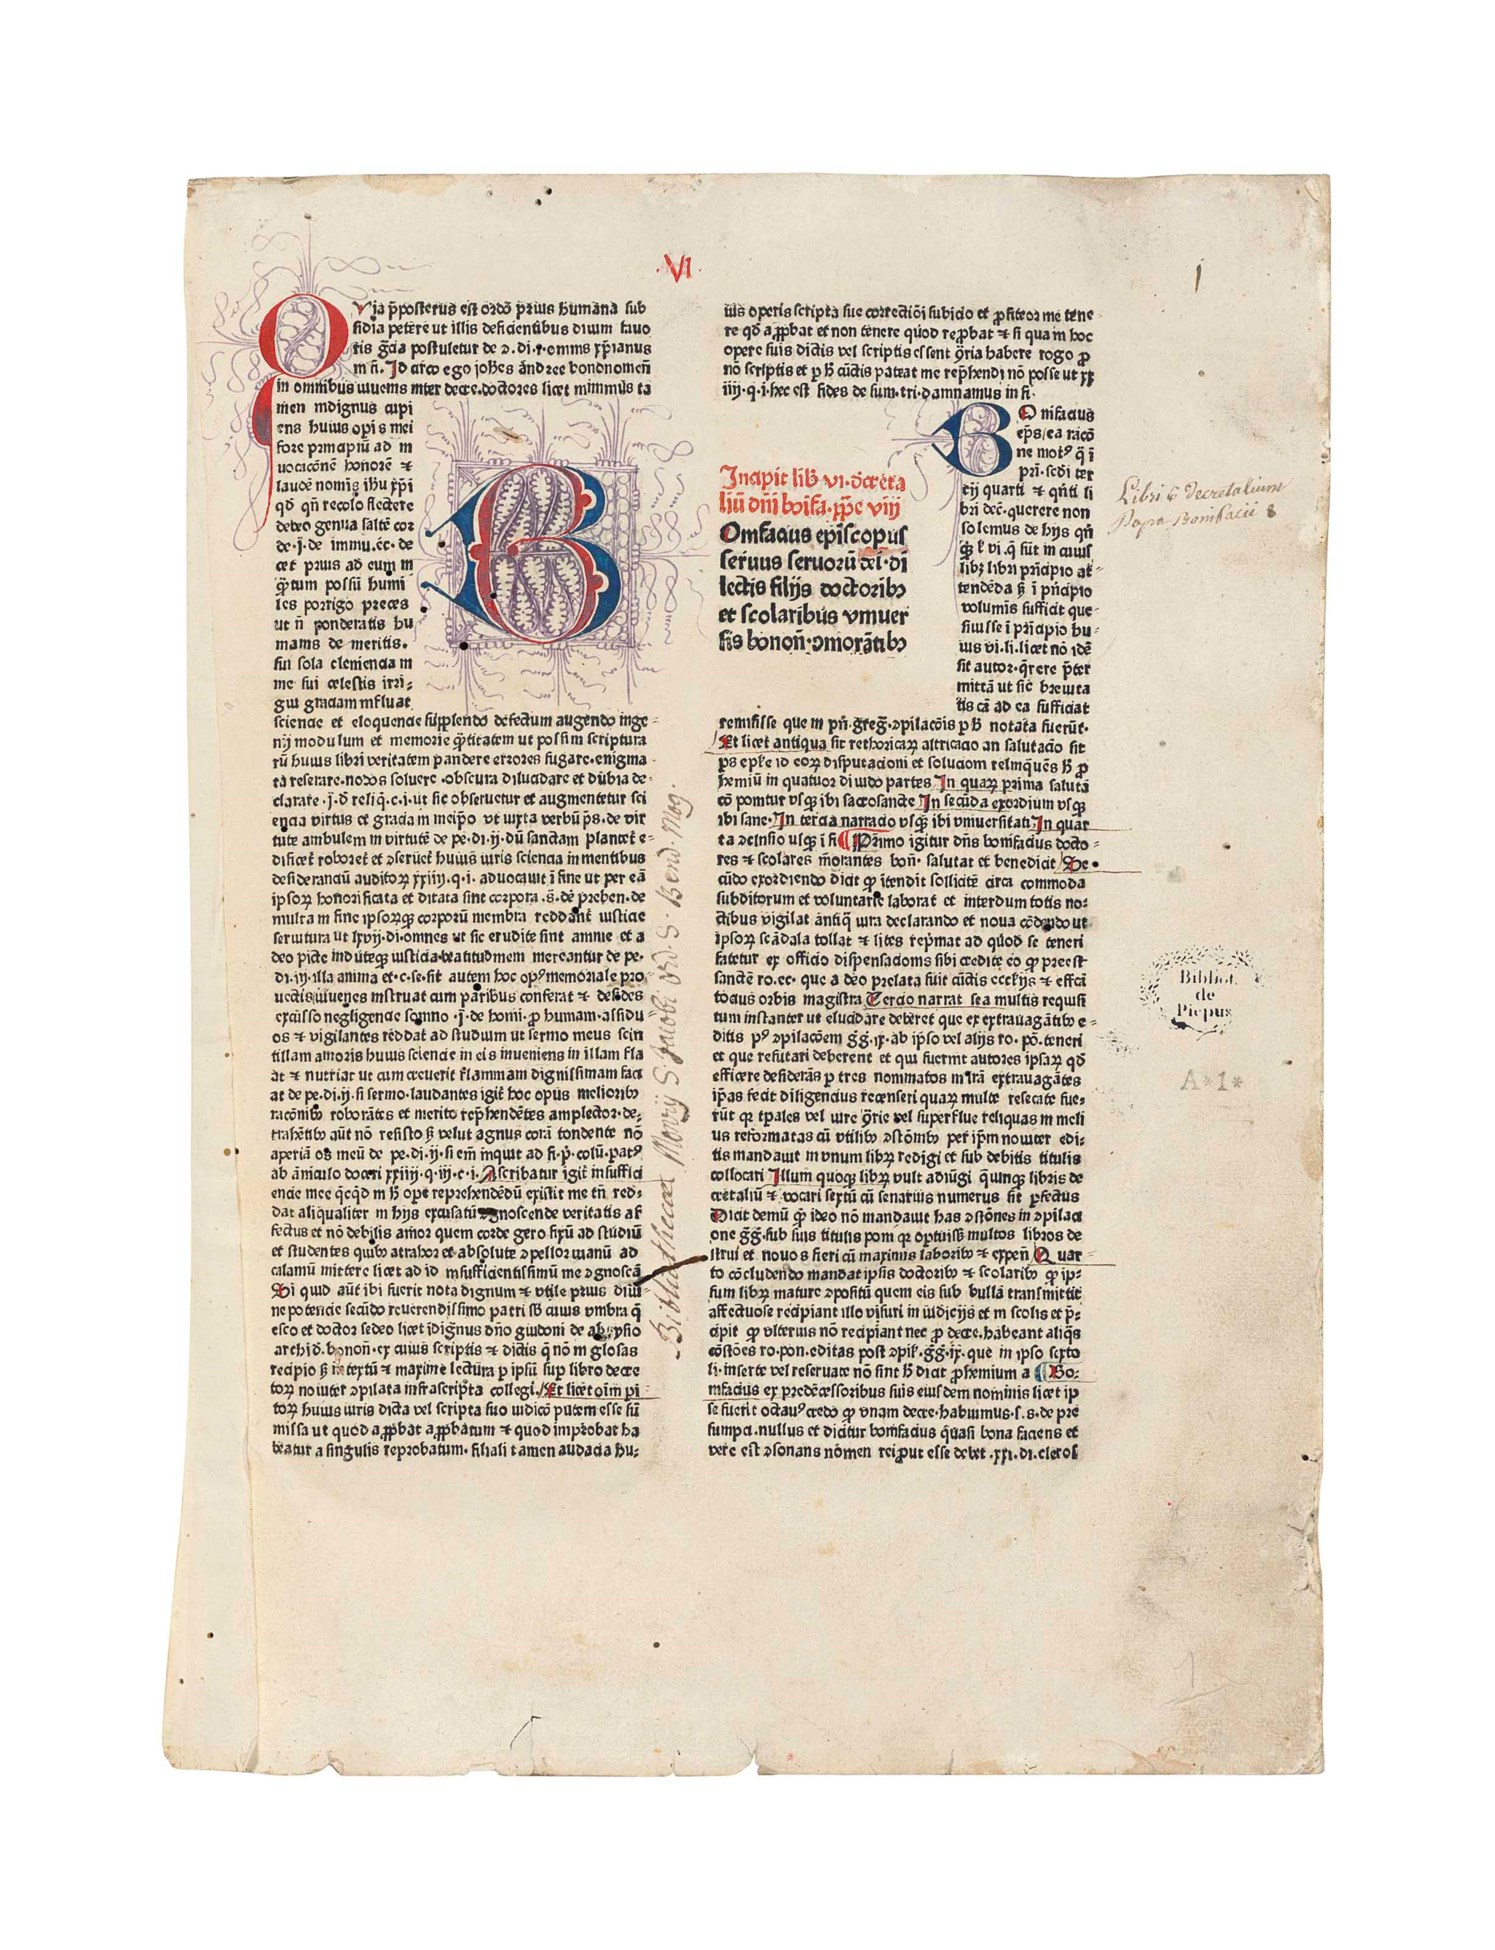 VI
Via p̄posterus est ordo p̄rius humana sub
sidia petere ut illis deficientibus diuim fauo
ris gr̄a postuletur de
m ñ. Id circo ego ioh̄es andree bononien̄
in omnibus iuuenis inter decre. doctores licet minimus ta
men indignus cupi
ens huius opis mei
fore principiū ad in
uocacionē honorē ⁊
laudē nomis ih̄u xp̄i
qd qn̄ recolo flectere
debeo genua saltē cor
de. j. de immu. ec̄. de
cet prius ad eum in
q̄tum possū humi
les porrigo preces
ut ñ ponderatis hu
manis de meritis.
sui sola clemencia in
me sui celestis irri-
gui graciam influat
sciencie et eloquencie supplendo defectum augendo inge-
nij modulum et memorie q̄titatem ut possim scriptura
rū huius libri veritatem pandere errores fugare. enigma
ta reserare. nodos soluere. obscura dilucidare et dubia de-
clarare. ut sic obseruetur et augmentetur sci
encia virtus et gracia in meip̄o ut iuxta verbū ps. de vir
tute ambulem in virtutē de pe. di. ij. dū sanctam plantet e-
dificet roboret et ↄseruet huius iuris sciencia in mentibus
desideranciū auditoꝝ xxiiij. q. i. aduocauit ī fine ut per eā
ipsoꝝ honorificata et ditata sint corpora
multa in fine ipsorꝫqꝫ corporū membra reddant iusticie
seruitura ut lxvij. di. omnes ut sic erudite sint anime et a
deo picte induteqꝫ iusticia beatitudinem mereantur de pe.
di. iij. illa anima et. c. se. sit autem hoc opꝰ memoriale pro-
uectis iuuenes instruat cum paribus conferat ⁊ desides
excusso negligencie somno
os ⁊ vigilantes reddat ad studium ut sermo meus scin
tillam amoris huius sciencie in eis inueniens in illam fla
at ⁊ nutriat ut cum creuerit flammam dignissimam faci
at de pe. di. ij. si sermo. laudantes igit̄ hoc opus melioribꝫ
racōnibꝫ roborātes et merito rep̄hendētes amplector. de-
trahētibꝫ aūt nō resisto sꝫ velut agnus corā tondente nō
aperiā os meū
ab aniculo doceri xxiiij. q. iij. c. i. Ascribatur igit̄ insuffici
encie mee q̄cq̄d in h̄ ope reprehendēdū existit me tn̄ red-
dat aliqualiter in hijs excusatū agnoscende veritatis af
fectus et nō debilis amor quem corde gero fixū ad studiū
et studentes quibꝫ atrahor et absolute ↄpellor manū ad
calamū mittere licet ad id insufficientissimū me ↄgnoscā
Si quid aūt ibi fuerit nota dignum ⁊ utile prius diui-
ne potencie secūdo reuerendissimo patri sꝫ cuius vmbra q̄
esco et doctor sedeo licet īdignus dn̄o guidoni de
archid. bonon̄. ex cuius scriptis ⁊ dictis q̄ nō in glosas
recipio sꝫ in textū ⁊ maxime lectura p ipsū sup libro decre
toꝝ nouiter ↄpilata infrascripta collegi. Et licet oīm pi
toꝝ huius iuris dicta vel scripta suo iudicō putem esse sū
missa ut quod approbat approbatum ⁊ quod improbat ha
beatur a singulis reprobatum. filiali tamen audacia hu-
ius operis scripta sue correctiōi subicio et profiteor me tene
re qd approbat et non tenere quod reprobat ⁊ si qua in hoc
opere suis dictis vel scriptis essent ꝯria habere rogo pro
nō scriptis et p h̄ cūctis pateat me rep̄hendi nō posse ut xx
iiij. q. i. hec est fides de sum. tri. damnamus in fi.
Incipit lib̄ vi. decreta
liū dn̄i bonifa. pp̄e viij
Onifacius episcopus
seruus seruorū dei. di
lectis filijs doctoribꝫ
et scolaribus vniuer
sis bonon̄. ↄmorātibꝫ
Onifacius
ep̄s/ea racō
ne motꝰ q̄ ī
pri. sedi ter
cij quarti ⁊ qn̄ti li
bri dec̄. querere non
solemus de hijs qn̄
q̄ ꝉ vi. q̄ sūt in cuius
libꝫ libri pn̄cipio at-
tendēda sꝫ ī pn̄cipio
volumīs sufficit que-
siuisse ī pn̄cipio hu-
ius vi. li. licet nō idē
sit autor. q̄rere p̄ter
mittā ut sic breuita
tis cā ad ea sufficiat
remisisse que in pn̄. greḡ. ↄpilacōis p h̄ notata fuerūt.
Et licet antiqua sit rethoricaꝝ altricacio an salutacio sit
ps eple id eoꝝ disputacioni et solucioni relinquēs h̄ pro
hemiū in quatuor diuido partes In quaꝝ prima salutā
cō ponitur vsqꝫ ibi sacrosancte In secūda exordium vsqꝫ
ibi sane. In tercia narracio vsqꝫ ibi vniuersitati. In quar
ta ↄclusio usqꝫ ī fi Primo igitur dn̄s bonifacius docto-
res ⁊ scolares morantes bon̄. salutat et benedicit Se-
cūdo exordiendo dicit qꝫ ītendit sollicite circa commoda
subditorum et voluntarie laborat et interdum totis no-
ctibus vigilat antiq̄ iura declarando et noua cōdendo ut
ipsoꝝ scādala tollat ⁊ lites rep̄mat ad quod se teneri
fatetur ex officio dispensacionis sibi credite eo qꝫ preest
sancte ro. ec. que a deo prelata fuit cūctis eccl̄ijs ⁊ effect̄
tocius orbis magistra Tercio narrat sea multis requisi
tum instanter ut elucidare deberet que ex extrauagātibꝫ e-
ditis pꝰ ↄpilacōem g̃g̃. ix. ab ipso vel alijs ro. pō. teneri
et que refutari deberent et qui fuerint autores ipsaꝝ qd
efficere desiderās p tres nominatos
ip̄as fecit diligencius recenseri quaꝝ multe resecate fue-
rūt
us reformatas cū vtilibꝫ ↄstōnibꝫ per ip̄m nouiter edi-
tis mandauit in vnum libꝝ redigi et sub debitis titulis
collocari Illum quoqꝫ libꝝ vult adiūgi quinqꝫ libris de
cretaliū ⁊ vocari sextū cū senarius numerus sit perfectus
Dicit demū qꝫ ideo nō mandauit has ↄstōnes in ↄpilaci
one g̃g̃. sub suis titulis poni qꝛ oportuiss̄ multos libros de
strui et nouos fieri cū maximis laboribꝫ ⁊ expen̄ Quar-
to cōcludendo mandat ipsis doctoribꝫ ⁊ scolaribꝫ qꝫ ip-
sum libꝝ mature ↄpositū quem eis sub bulla transmittit
affectuose recipiant illo vsuri in iudicijs et in scolis et p̄-
cipit qꝫ vlterius nō recipiant nec pro decre. habeant aliq̄s
cōstōnes ro. pon. editas post ↄpil̄. g̃g̃. ix. que in ipso sexto
li. inserte vel reseruate nō sint h̄ dicit prohemium a Bo-
nifacius ex predecessoribus suis eiusdem nominis licet ip
se fuerit octauꝰ credo qꝫ vnam decre. habuimus
sumpci. nullus et dicitur bonifacius quasi bona faciens et
vere est ↄsonans nomen rei prout esse debet . xxi. di. cleros
Libri 6 Decretalium
Papa Bonifacii 8
Bibliothecæ Montis S. Jacobi Ord. S. Bened. Mog.
Bibliot.
de
Picpus
A*1*
1